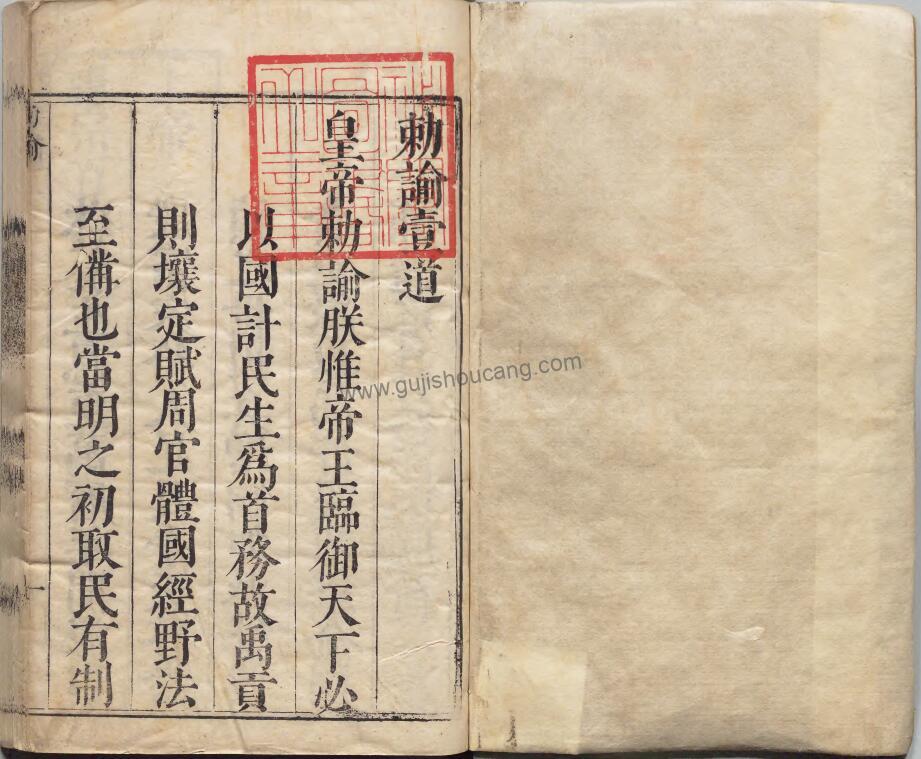 勅諭壹道
皇帝勅諭朕惟帝王臨御天下必
以國計民生為首務故禹貢
則壤定賦周官體國經野法
至備也當明之初取民有制
www.gujishoucang.com